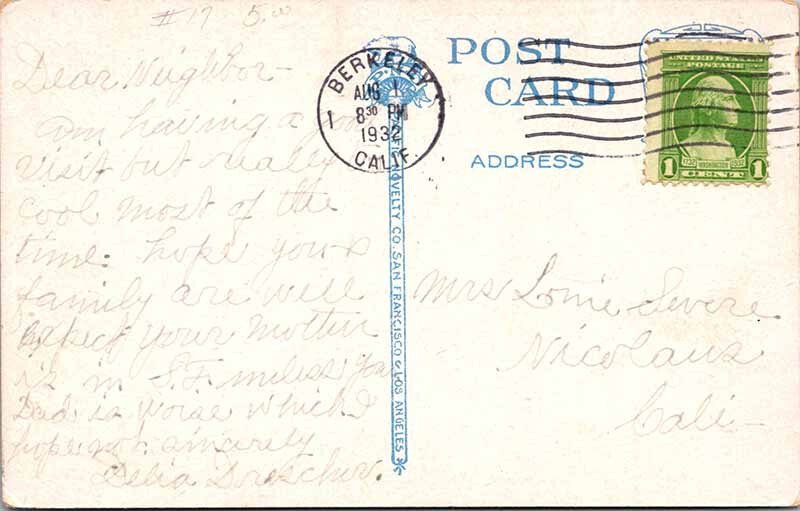 #17 5.00
POST
CARD
ADDRESS
BERKELEY
AUG 1
8 30 PM
1932
CALIF.
1
UNITED STATES
POSTAGE
1732 WASHINGTON 1932
1 CENT 1
PACIFIC NOVELTY CO. SAN FRANCISCO & LOS ANGELES
Dear Neighbor-
am having a
visit but really
cool most of the
time. hope you &
family are well
expect your mother
is in S.F. unless your
Dad is worse which I
hope not. sincerely
Delia
Mrs Severe
Nicolaus
Cali-